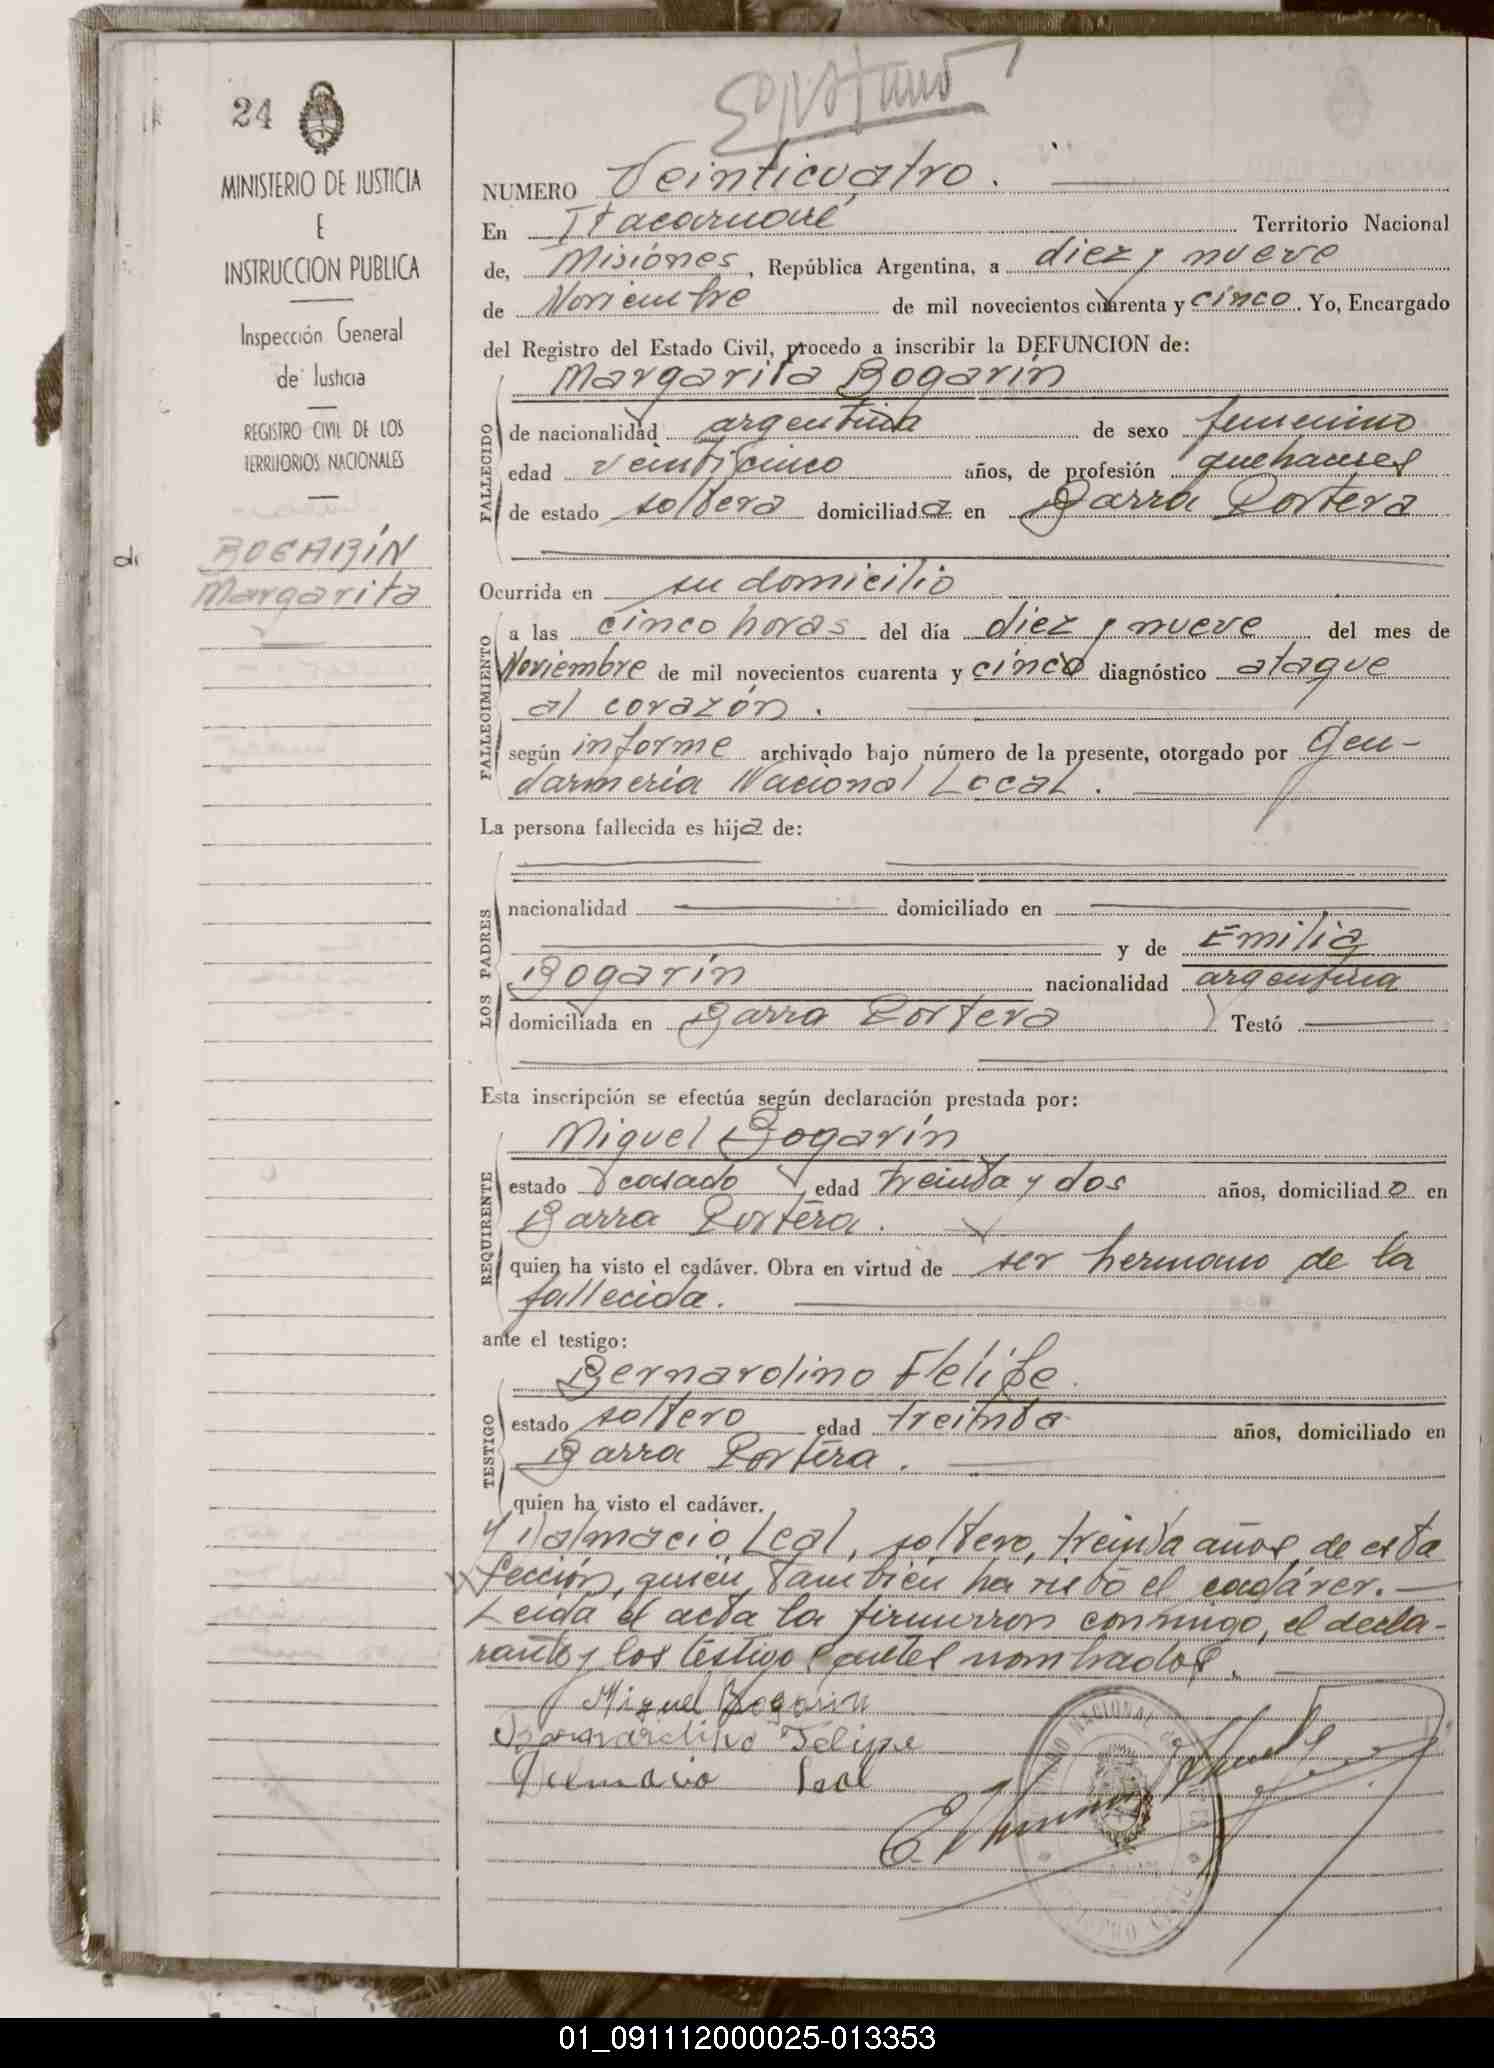 24
MINISTERIO DE JUSTICIA
E
INSTRUCCION PUBLICA
Inspección General
de Justicia
REGISTRO CIVIL DE LOS
TERRITORIOS NACIONALES
di
BOGARÍN
Margarita
NUMERO Veinticuatro.
En Itacaruaré Territorio Nacional
de, Misiónes, República Argentina, a diez y nueve
de Noviembre de mil novecientos cuarenta y cinco. Yo, Encargado
del Registro del Estado Civil, procedo a inscribir la DEFUNCION de:
Margarita Bogarín
FALLECIDO
de nacionalidad argentina de sexo femenino
edad veinticinco años, de profesión quehaceres
de estado soltera domiciliada en Barra Portera
Ocurrida en su domicilio
FALLECIMIENTO
a las cinco horas del día diez y nueve del mes de
Noviembre de mil novecientos cuarenta y cinco diagnóstico ataque
al corazón.
según informe archivado bajo número de la presente, otorgado por Gen-
darmería Nacional Local.
La persona fallecida es hija de:
LOS PADRES
nacionalidad domiciliado en
y de Emilia
Bogarín nacionalidad argentina
domiciliada en Barra Portera Testó
Esta inscripción se efectúa según declaración prestada por:
Miguel Bogarín
REQUIRENTE
estado casado edad treinta y dos años, domiciliado en
Barra Portera.
quien ha visto el cadáver. Obra en virtud de ser hermano de la
fallecida.
ante el testigo:
Bernardino Felipe
TESTIGO
estado soltero edad treinta años, domiciliado en
Barra Portera.
quien ha visto el cadáver.
y Dalmacio Leal, soltero, treinta años, de esta
Sección, quien también ha visto el cadáver.
Leida el acta la firmarron conmigo, el decla-
rante y los testigos antes nombrados.
Miguel Bogarin
Bernardino Felipe
Dalmacio Leal
01_091112000025-013353